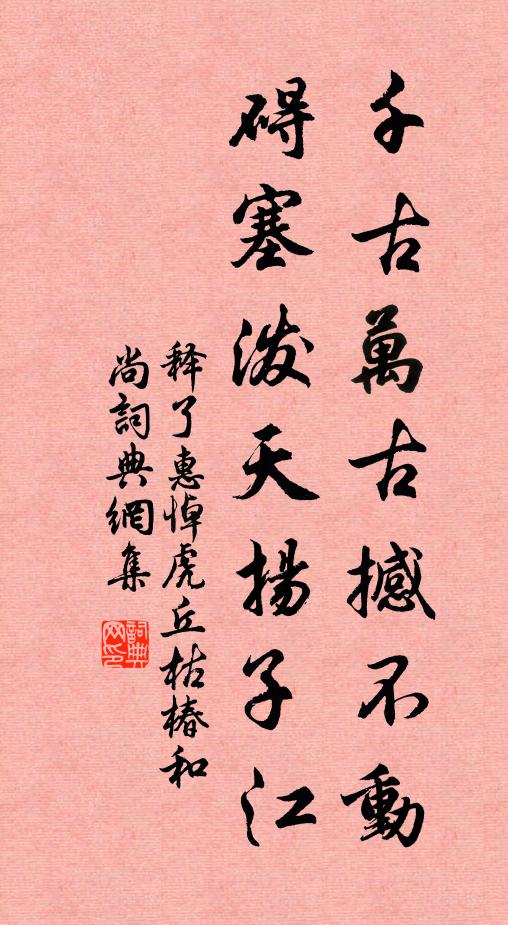 千古萬古撼不動
碍塞泼天揚子江
释了惠悼虎丘枯椿和
尚詞典網集
詞典网印